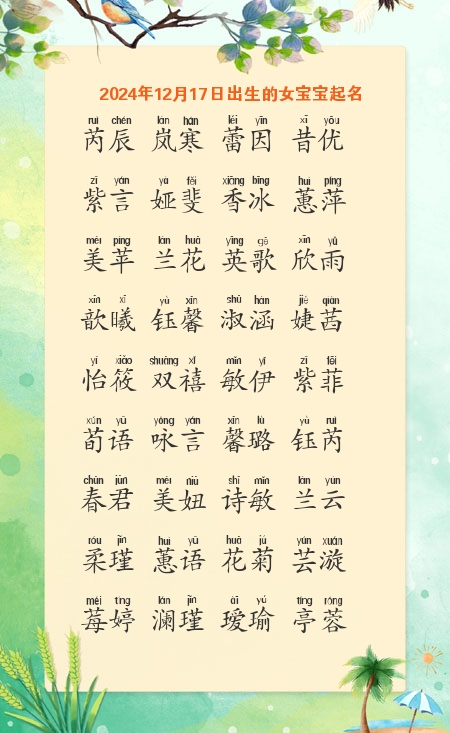 2024年12月17日出生的女宝宝起名
ruì chén lán hán lěi yīn xī yōu
芮辰 岚寒 蕾因 昔优
zǐ yán yà fěi xiāng bīng huì píng
紫言 娅斐 香冰 蕙萍
měi píng lán huā yīng gē xīn yǔ
美苹 兰花 英歌 欣雨
xīn xī yù xīn shū hán jié qiàn
歆曦 钰馨 淑涵 婕茜
yí xiǎo shuāng xǐ mǐn yī zǐ fēi
怡筱 双禧 敏伊 紫菲
xún yǔ yǒng yán xīn lù yù ruì
荀语 咏言 馨璐 钰芮
chūn jūn měi niǔ shī mǐn lán yún
春君 美妞 诗敏 兰云
róu jǐn huì yǔ huā jú yún xuán
柔瑾 蕙语 花菊 芸漩
méi tíng lán jǐn ài yú tíng róng
莓婷 澜瑾 瑷瑜 亭蓉